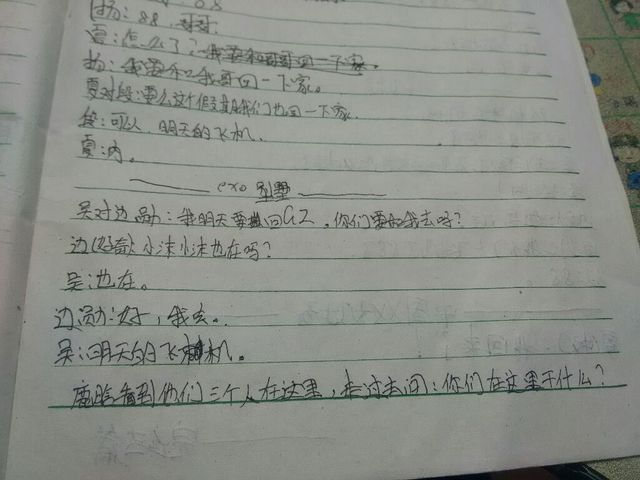 扬：88，哥哥。
夏：怎么了？我要和哥哥回一下家。
扬：我要和我哥回一下家。
夏对段：要么这个假期我们也回一下家。
段：可以，明天的飞机。
夏：内。
exo 别墅
吴对边勋：我明天要回GZ，你们要和我去吗？
边(好奇)：小沫小沫也在吗？
吴：也在。
边勋：好，我去。
吴：明天的飞机。
鹿晗看到他们三个人在这里，走过去问：你们在这里干什么？